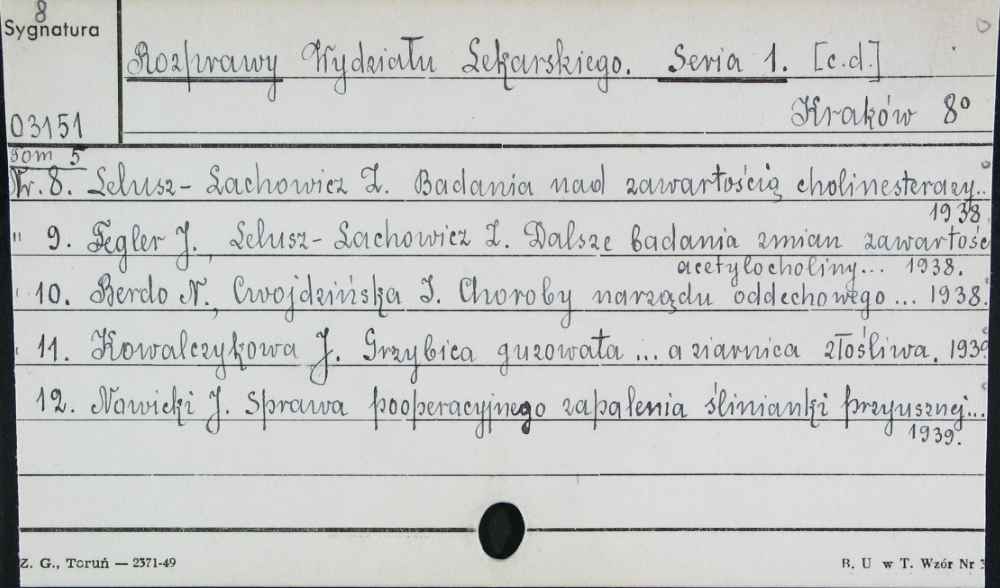 8
Sygnatura
Rozprawy Wydziału Lekarskiego. Seria 1. [c.d.]
Kraków 8°
03151
Tom 5
Nr. 8. Lelusz-Lachowicz Z. Badania nad zawartością cholinesterazy..
1938
" 9. Fegler J., Lelusz-Lachowicz Z. Dalsze badania zmian zawartośc
acetylocholiny... 1938.
10. Berdo N., Cwojdzińska I. Choroby narządu oddechowego ... 1938.
11. Kowalczykowa J. Grzybica guzowata ... a ziarnica złośliwa. 1939
12. Nowicki J. Sprawa pooperacyjnego zapalenia ślinianki przyusznej...
1939.
Z. G., Toruń — 2371-49
B. U w T. Wzór Nr 3